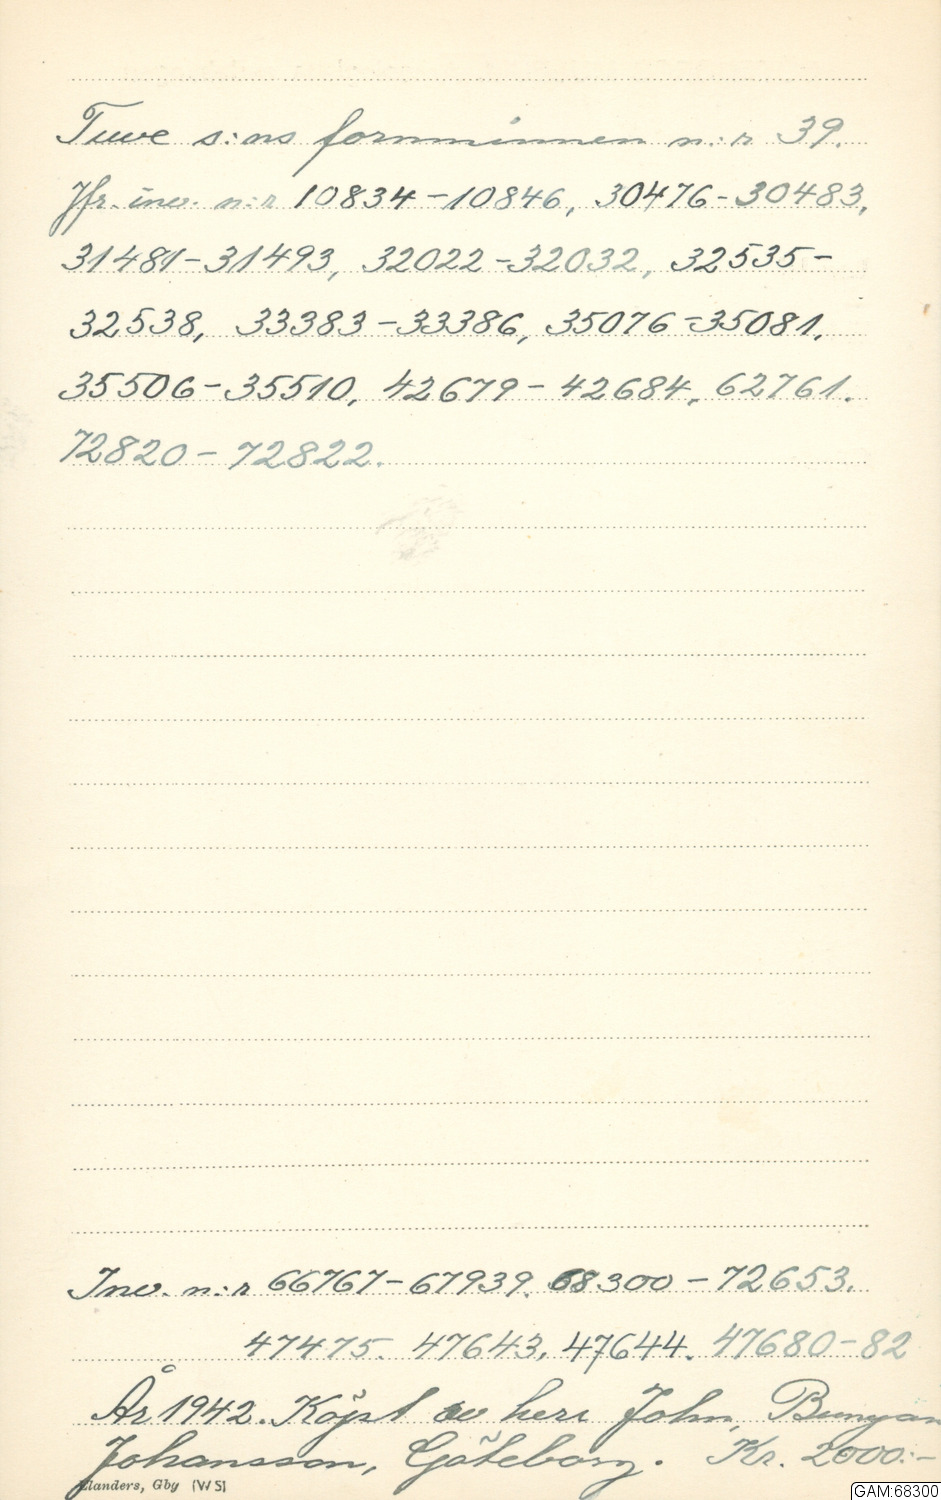 Tuve s:ns fornminnen n:r 39.
Jfr. inv. n:r 10834-10846, 30476-30483,
31481-31493, 32022-32032, 32535-
32538, 33383-33386, 35076-35081.
35506-35510, 42679-42684, 62761.
72820-72822.
Inv. n:r 66767-67939. 68300-72653.
47475. 47643, 47644. 47680-82
År 1942. Köpt av herr John, Bunyan
Johansson, Göteborg. Kr. 2000:-
Elanders, Gby (WS)
GAM:68300